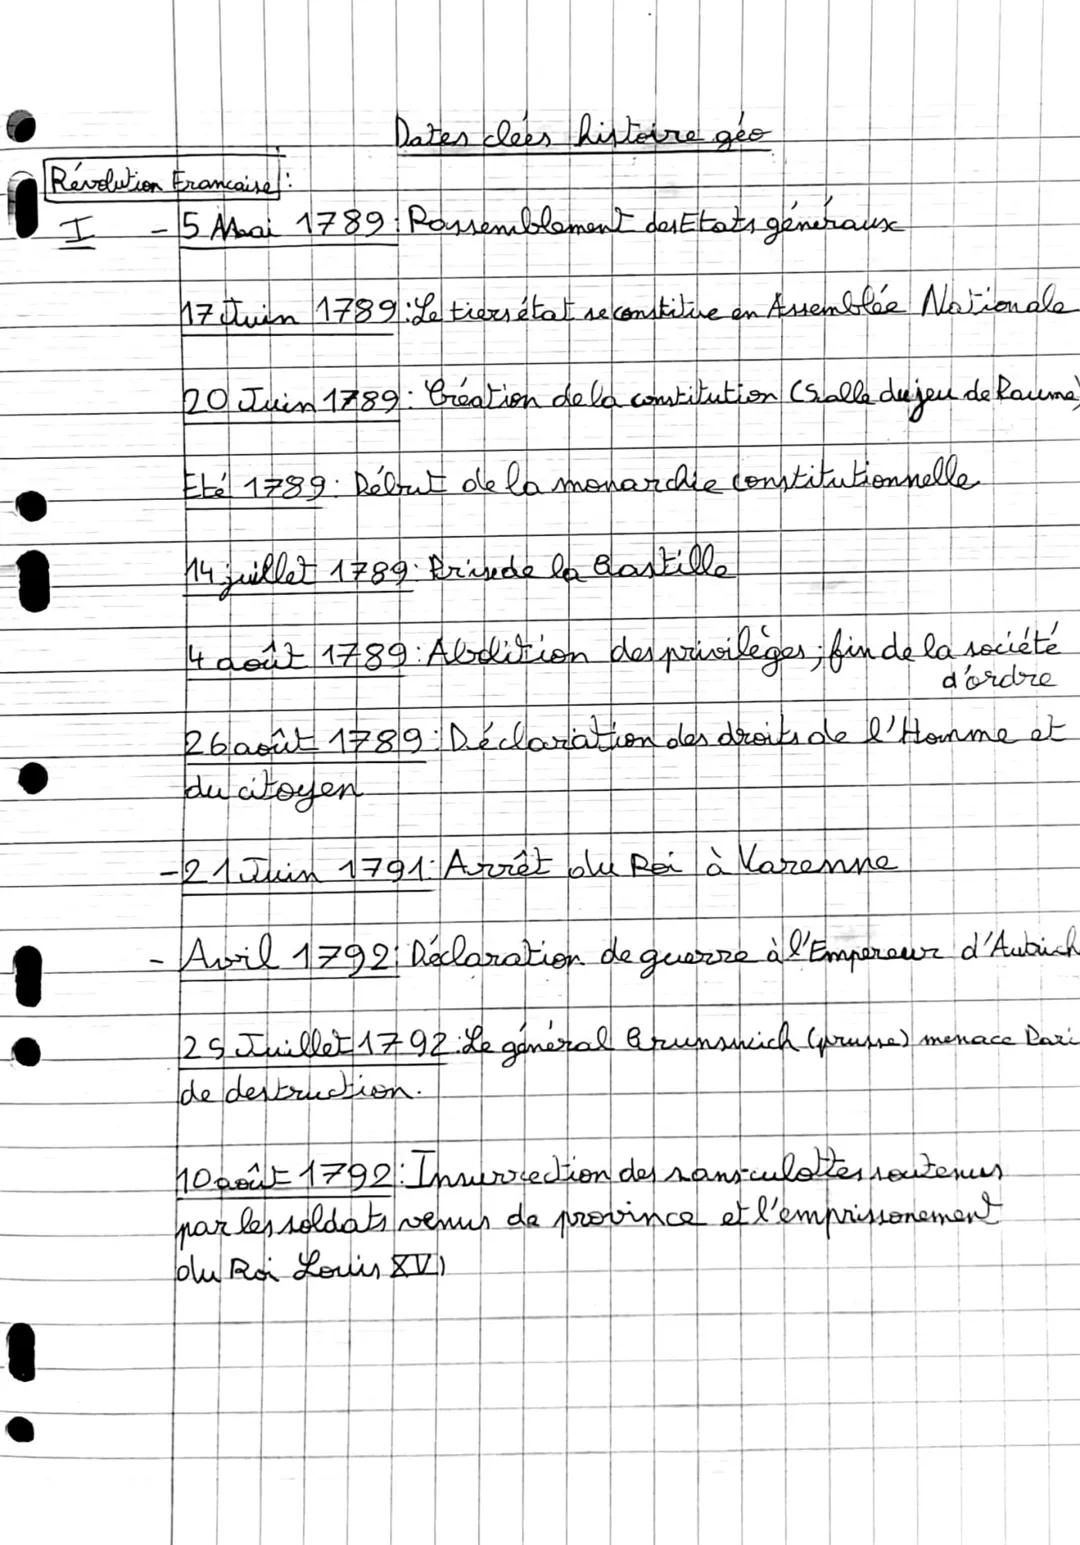 Dates clées histoire géo
Révolution Française :
I - 5 Mai 1789 : Rassemblement des Etats généraux
17 Juin 1789 : Le tiers état se constitue en Assemblée Nationale
20 Juin 1789 : Création de la constitution (Salle du jeu de Paume)
Eté 1789 : Début de la monarchie constitutionnelle
14 juillet 1789 : Prise de la Bastille
4 août 1789 : Abolition des privilèges ; fin de la société
d'ordre
26 août 1789 : Déclaration des droits de l'Homme et
du citoyen
- 21 Juin 1791 : Arrêt du Roi à Varenne
- Avril 1792 : Déclaration de guerre à l'Empereur d'Autrich
25 Juillet 1792 : Le général Brunswich (prusse) menace Pari
de destruction.
10 août 1792 : Insurrection des sans-culottes soutenus
par les soldats venus de province et l'emprissonement
du Roi Louis XVI